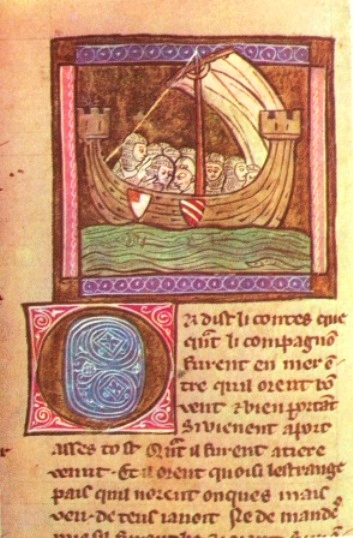 OR dist li contes que
qūt li compagnō
furent en mer ē
tre quil orent bō
vent ⁊ bien portāt
Si vienent a port
asses tost Qāt il furent a tiere
venut · Et il orent quoisi lestrange
pais quil norent onques mais
veu · de teus iavoit Ne de mandē